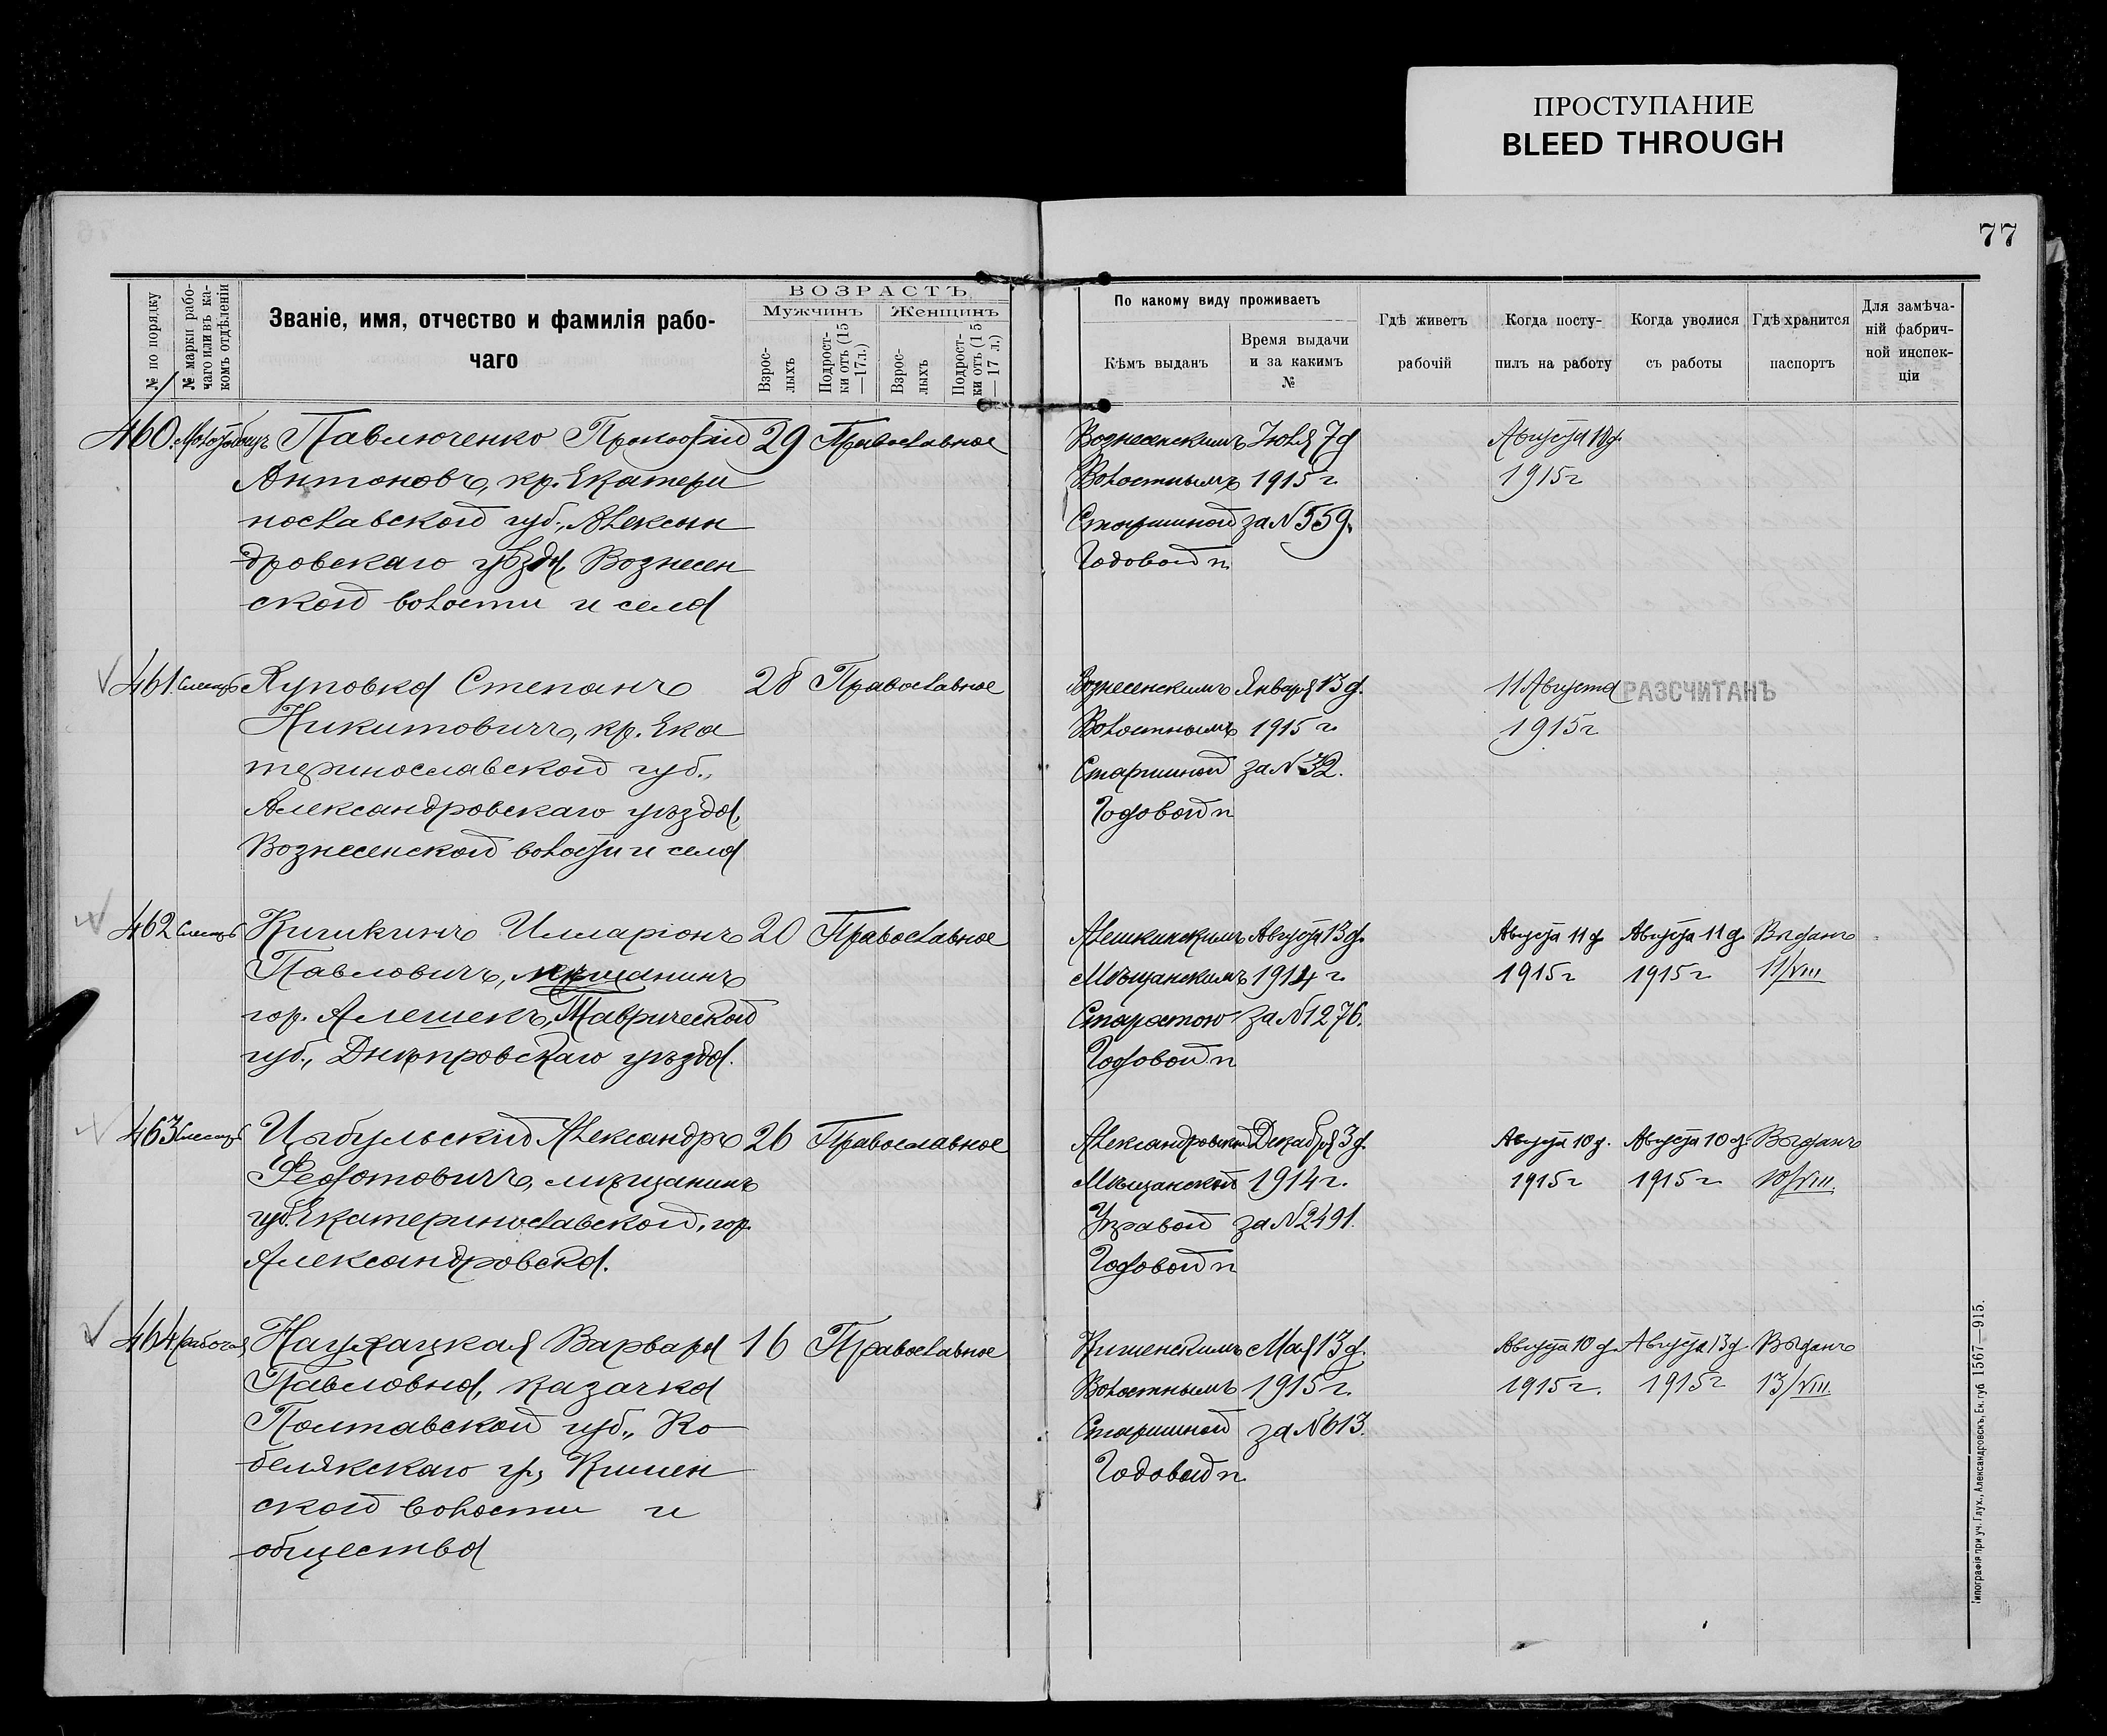 ПРОСТУПАНИЕ
BLEED THROUGH
77
№ по порядку
№ марки рабо-
чаго или въ ка-
комъ отдѣленіи
Званіе, имя, отчество и фамилія рабо-
чаго
ВОЗРАСТЪ
Мужчинъ
Женщинъ
Взрос-
лыхъ
Подрост-
ки отъ (15
—17 л.)
Взрос-
лыхъ
Подрост-
ки отъ (15
—17 л.)
По какому виду проживаетъ
Кѣмъ выданъ
Время выдачи
и за какимъ
№
Гдѣ живетъ
рабочій
Когда посту-
пилъ на работу
Когда уволися
съ работы
Гдѣ хранится
паспортъ
Для замѣча-
ній фабрич-
ной инспек-
ціи
460. Молотобоецъ Павлюченко Прокофій 29 Православное Вознесенскимъ Іюля 7 д. Августа 10 д.
Антоновъ, кр. Екатери Волостнымъ 1915 г. 1915 г
нославской губ., Алексан Старшиной за N 559.
дровскаго уѣзда, Вознесен Годовой п.
ской волости и села
461. Слесарь Степанъ 28 Православное Вознесенскимъ Января 13 д. 11 Августа РАЗСЧИТАНЪ
Никитовичъ, кр. Ека Волостнымъ 1915 г. 1915 г
теринославской губ., Старшиной за N 32.
Александровскаго уѣзда, Годовой п
Вознесенской волости и села
462 Слесарь Кишкинъ Илларіонъ 20 Православное Алешкинскимъ Августа 13 д. Августа 11 д. Августа 11 д. Выданъ
Павловичъ, мѣщанинъ Мѣщанскимъ 1914 г. 1915 г 1915 г 11/VIII
гор. Алешекъ, Таврической Старостою за N 1276.
губ., Днѣпровскаго уѣзда. Годовой п
463 Слесарь Цыбульскій Александръ 26 Православное Александровской Декабря 3 д. Августа 10 д. Августа 10 д. Выданъ
Федотовичъ, мѣщанинъ Мѣщанской 1914 г. 1915 г 1915 г 10/VIII.
губ. Екатеринославской, гор. Управой за N 2491.
Александровска. Годовой п
464 рабочая Варвара 16 Православное Кишенскимъ Мая 13 д. Августа 10 д. Августа 13 д. Выданъ
Павловна, казачка Волостнымъ 1915 г. 1915 г. 1915 г 13/VIII.
Полтавской губ., Ко Старшиной за N 613.
белякскаго у., Кишен Годовой п.
ской волости и
общества
Типографія при уч. Глух., Александровскъ, Ек. губ 1567—915.